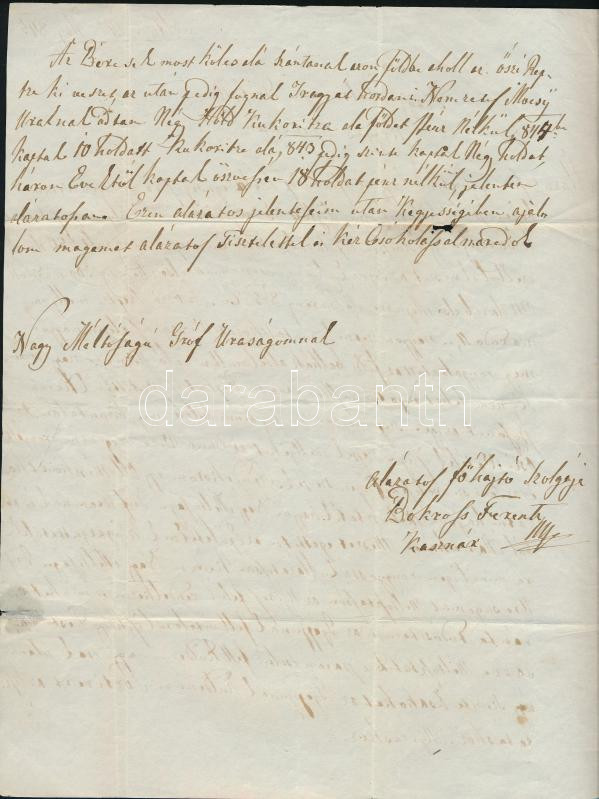 Az Béresek most köles alá szántanak azon földbe aholl az őszi Rep-
tze ki veszet, az után pedig fognak Tragyát hordani. Nemzetes Mocsy
Uralnak óttan Nég Hóld Kukoritza alá földet Pénz Nélkül, 844be
kaptak 10 holdatt Kukoritza alá, 843 pedig szinte kaptak Nég holdat,
három Évektöl kaptak öszvesen 18 holdat pénz nélkül, jelentem
alázatosan. Ezen alázatos jelentéseim után Kegyességiben ajál-
lom magamat alázatos Tisztelettel és Kéz Csókolással maradok
Nagy Méltóságú Gróf Uraságomnak
darabanth
alázatos főhajtó szolgája
Bokross Ferentz
Kasznár